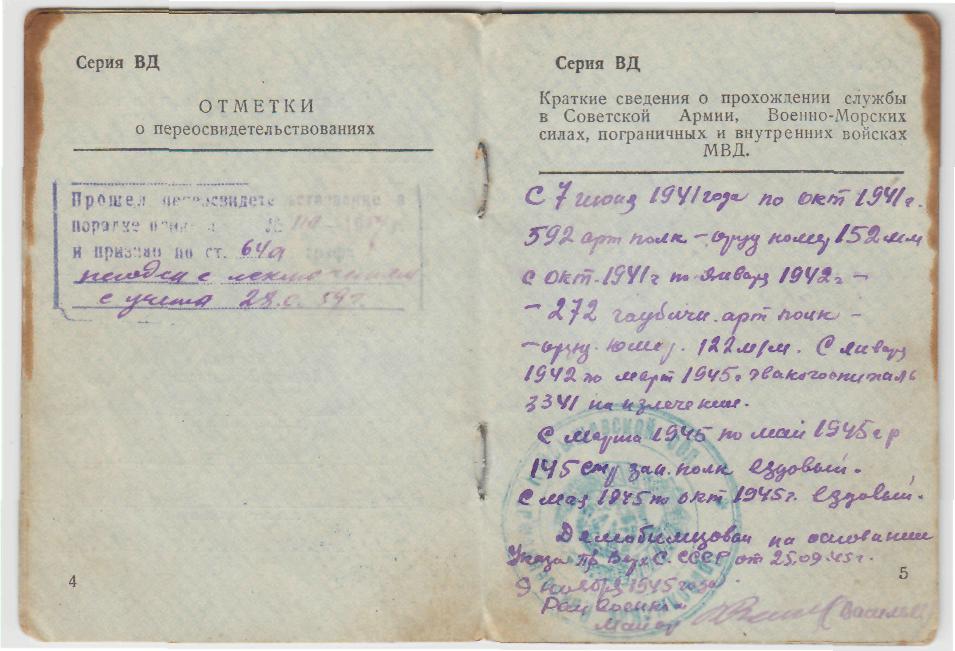 Серия ВД
ОТМЕТКИ
о переосвидетельствованиях
Прошел переосвидетельствование в
порядке №
и признан по ст. 64а графа
с учета 28. 59 г.
4
Серия ВД
Краткие сведения о прохождении службы
в Советской Армии, Военно-Морских
силах, пограничных и внутренних войсках
МВД.
С 7 июня 1941 года по окт 1941 г.
592 арт полк - оруд номер 152 мм
С окт. 1941 г по январь 1942 г -
- 272 гаубичн. арт полк -
- оруд. номер. 122 м/м. С январь
1942 по март 1945 г эвакогоспиталь
3341 на излечении.
С марта 1945 по май 1945 г
145 стр зап. полк ездовый.
С мая 1945 по окт 1945 г. ездовый.
Демобилизован на основании
Указа Пр Верх С. СССР от 25.09.45 г.
9 ноября 1945 года.
Райвоенком
Майор (Васильев)
5